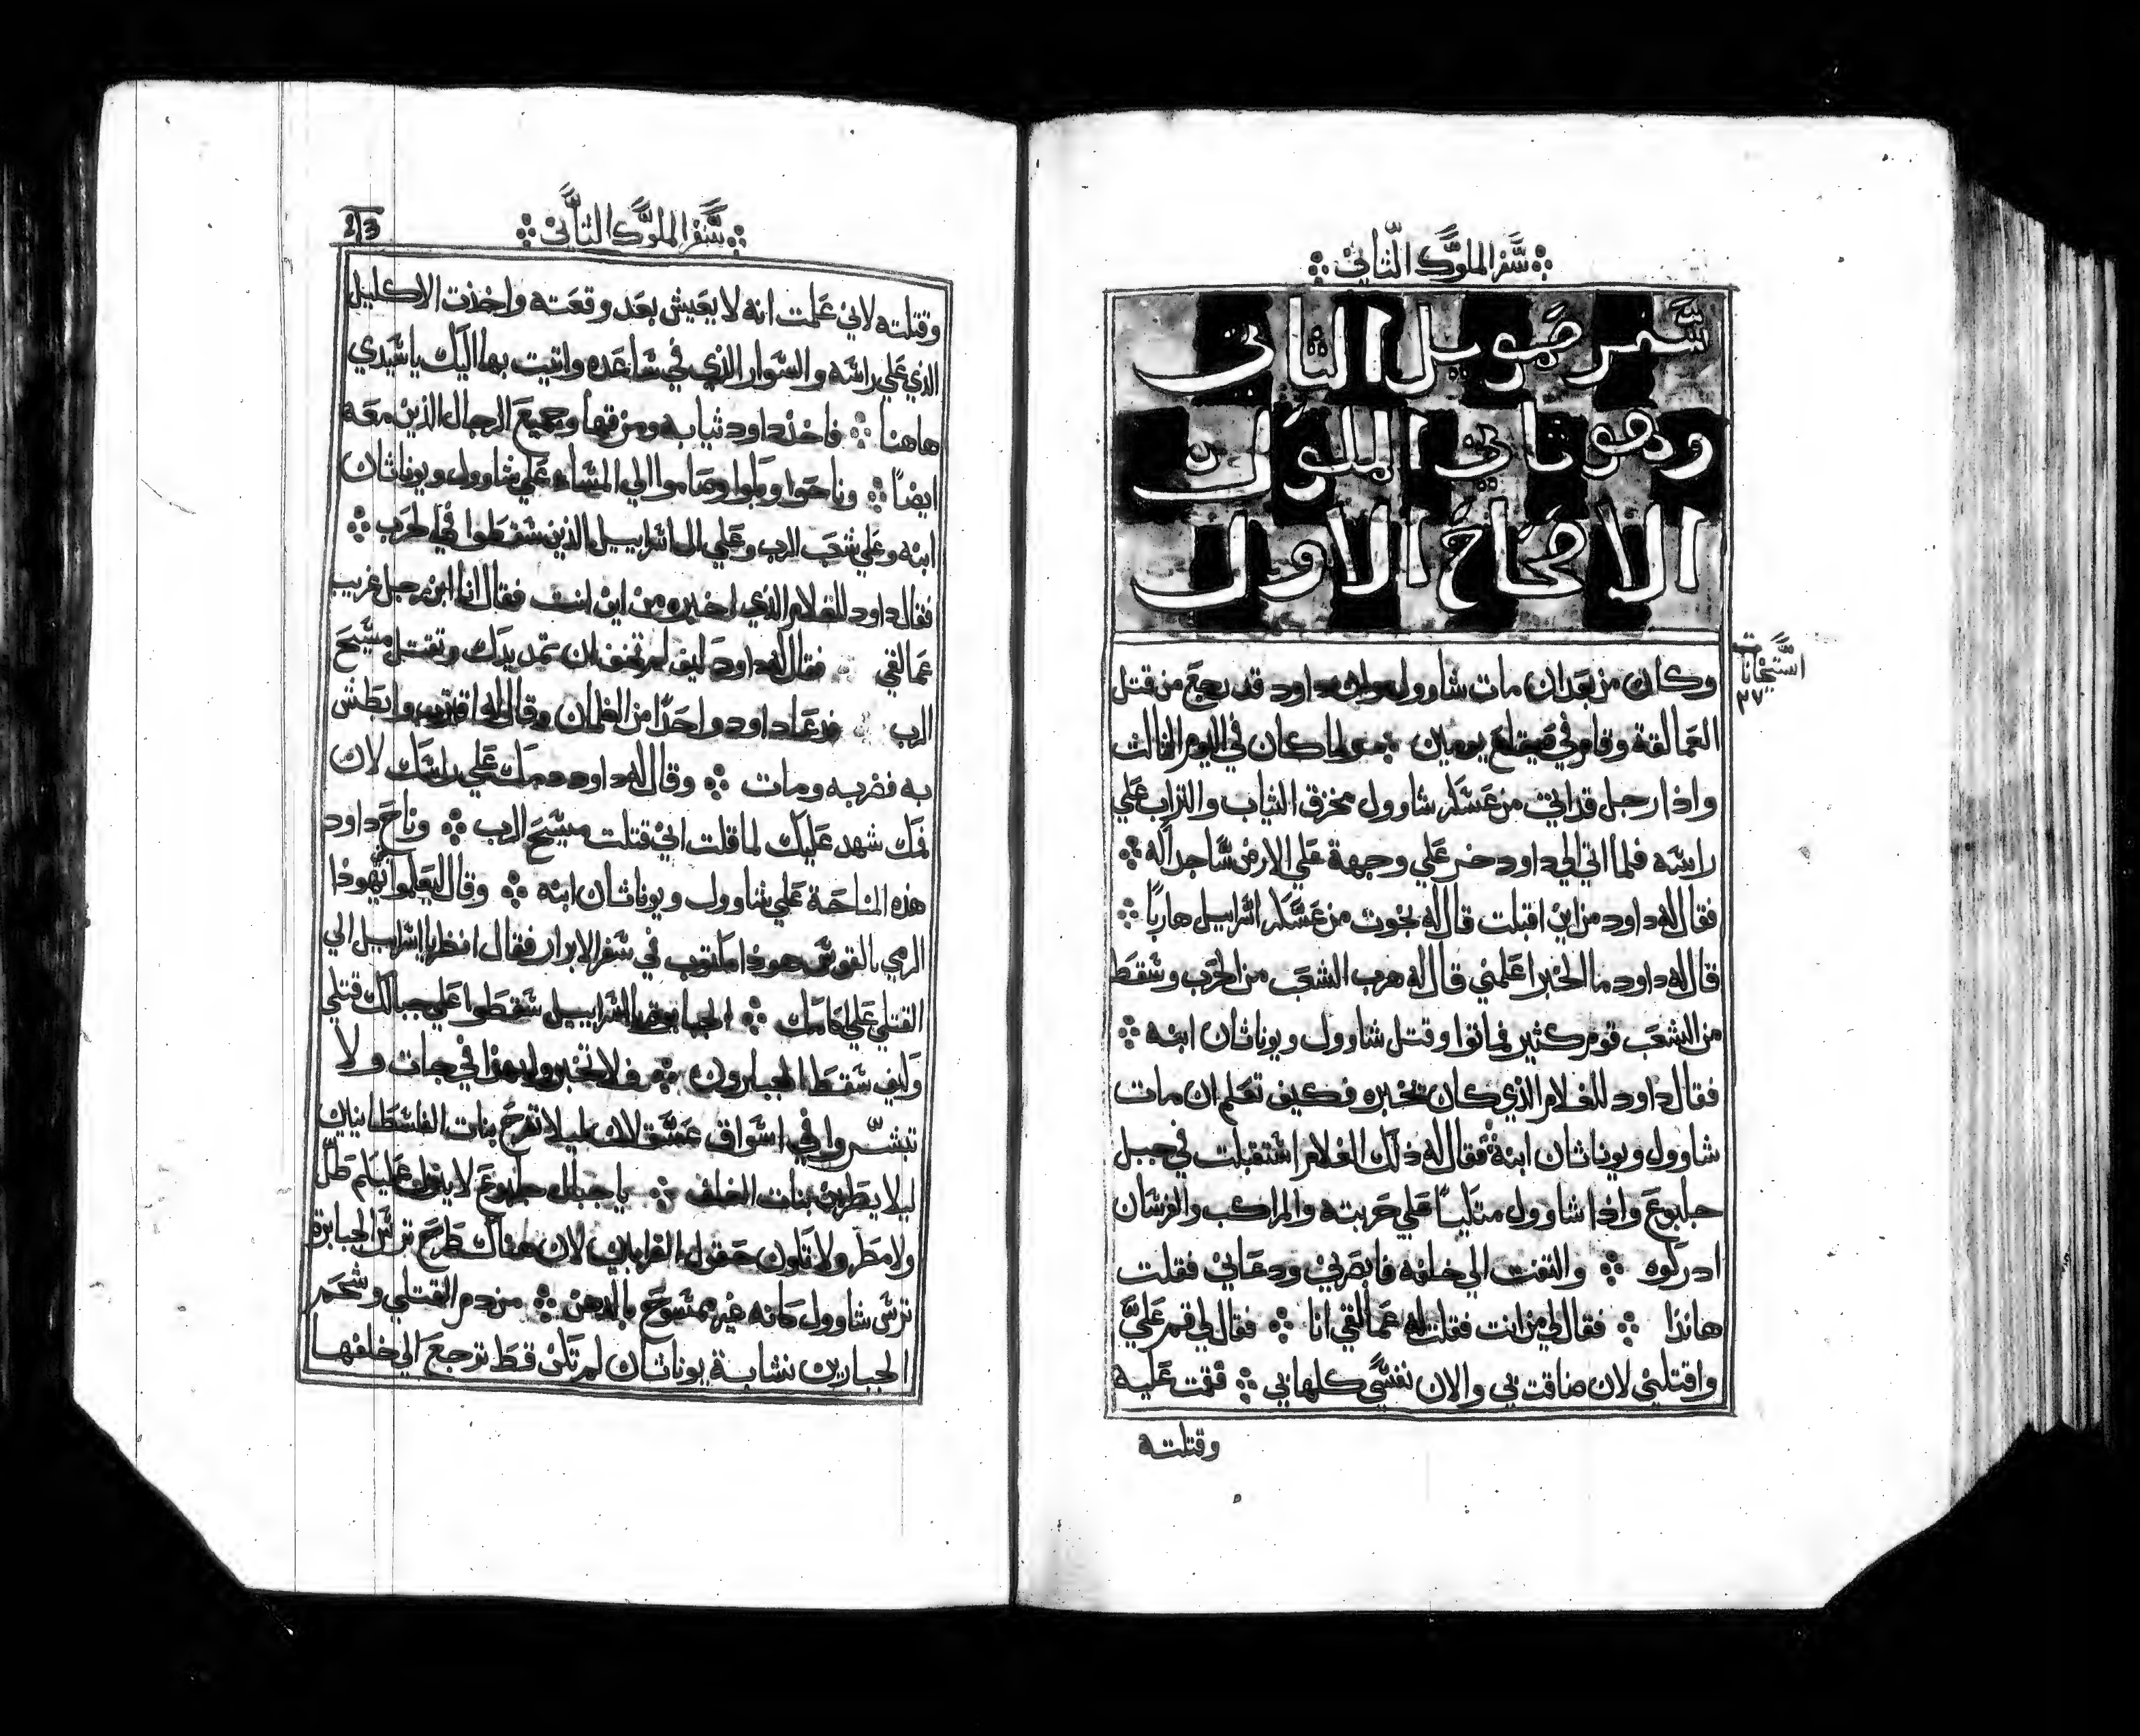 سفر الملوك الثاني
سفر صمويل الثاني
وهو ثاني الملوك
الاصحاح الاول
وكان من بعد ان مات شاوول وان داود قد رجع من قتل
٢٧
العمالقة وقام في صيقلغ يومين ولما كان في اليوم الثالث
واذا رجل قد اتي من عسكر شاوول مخزق الثياب والتراب علي
راسه فلما اتي الي داود خر علي وجهة علي الارض ساجدا له
فقال له داود من اين اقبلت قال له نجوت من عسكر اسراييل هاربًا
قال له داود ما الخبر اعلمني قال له هرب الشعب من الحرب وسقط
من الشعب قوم كثير فماتوا وقتل شاوول ويوناثان ابنه
فقال داود للغلام الذي كان يخبره فكيف تعلم ان مات
شاوول ويوناثان ابنة فقال له ذلك الغلام استقبلت في جبل
جلبوع واذا شاوول متكيًا علي حربته والمراكب والفرسان
ادركوه والتفت الي خلفه فابصرني ودعاني فقلت
هانذا فقال لي من انت فقلت له عمالقي انا فقال لي قم عليَّ
واقتلني لان ضاقت بي والان نفسي كلها بي فقمت عليه
وقتلته
سفر الملوك التاني
213
وقتلته لاني علمت انه لا يعيش بعد وقعته واخذت الاكليل
الذي علي راسه والسوار الذي في ساعده واتيت بها اليك يا سيدي
هاهنا فاخذ داود ثيابه ومزقها وجميع الرجال الذين معه
ايضًا وناحوا وبكوا وصاموا الي المساء علي شاوول ويوناثان
ابنه وعلي شعب الرب وعلي ال اسراييل الذين سقطوا في الحرب
فقال داود للغلام الذي اخبره من اين انت فقال انا ابن رجل غريب
عمالقي فقال له داود كيف لم تخف ان تمد يدك وتقتل مسيح
الرب فدعا داود واحدًا من الغلمان وقال له اقترب وابطش
به فضربه ومات وقال له داود دمك علي راسك لان
فمك شهد عليك لما قلت اني قتلت مسيح الرب وناح داود
هذه المناحة علي شاوول ويوناثان ابنه وقال ليعلموا يهوذا
الرمي بالقوس هوذا مكتوب في سفر الابرار فقال انظر يا اسراييل الي
القتلي علي اسراييل سقطوا علي جبالك قتلي
وكيف سقط الجبابرون فلا تخبروا بهذا في جات ولا
تبشروا في اسواق عسقلان ليلا تفرح بنات الفلسطانيين
ليلا يطربن بنات الغلف يا جبال جلبوع لا ينزل عليكم طل
ولا مطر ولا تكون حقول القرابين لان هناك طرح ترس الجبابرة
ترس شاوول كانه غير ممسوح بالدهن من دم القتلي وشحم
الجبارين نشابة يوناثان لم تكن قط ترجع الي خلفها